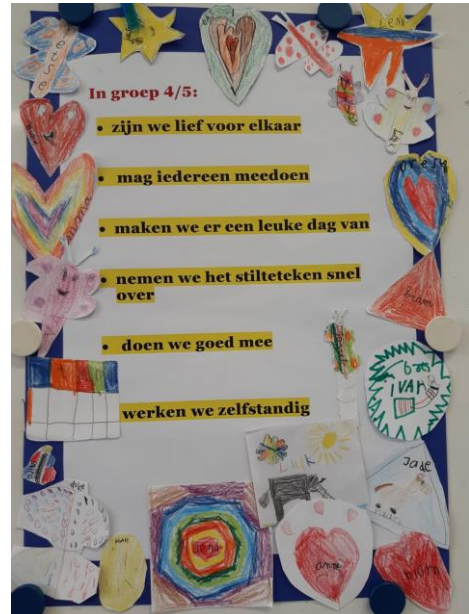 In groep 4/5:
• zijn we lief voor elkaar
• mag iedereen meedoen
• maken we er een leuke dag van
• nemen we het stilteteken snel
over
• doen we goed mee
werken we zelfstandig
bram
IVAH
Luuk
Jade
anne